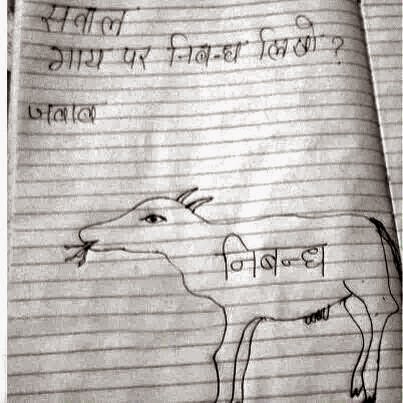 सवाल
गाय पर निबन्ध लिखो ?
जवाब
निबन्ध